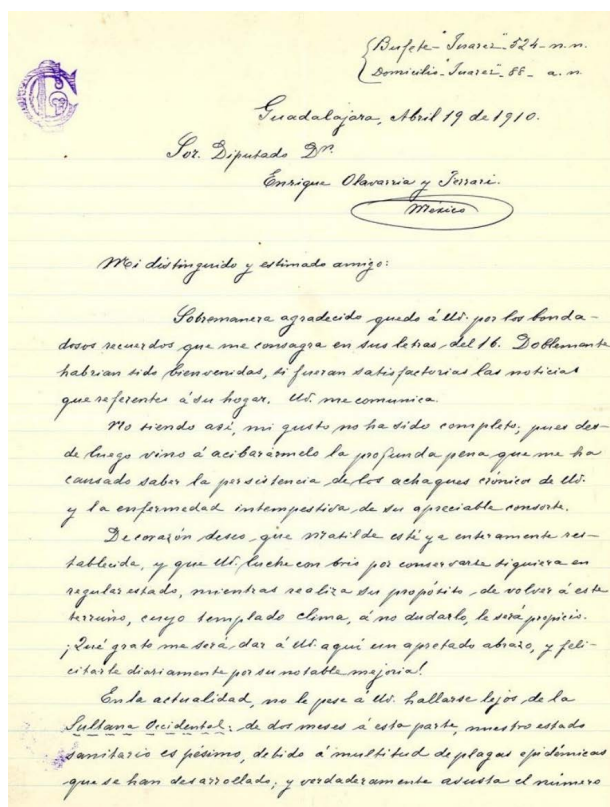 Bufete - "Juarez" - 524 - n.n.
Domicilio - "Juarez" - 88 - a.n.
Guadalajara, Abril 19 de 1910.
Sor. Diputado Dn.
Enrique Olavarria y Ferrari.
México
Mi distinguido y estimado amigo:
Sobremanera agradecido quedo á Ud. por los bonda-
dosos recuerdos que me consagra en sus letras del 16. Doblemente
habrian sido bienvenidas, si fueran satisfactorias las noticias
que referentes á su hogar, Ud. me comunica.
No siendo así, mi gusto no ha sido completo; pues des-
de luego vino á acibarármelo la profunda pena que me ha
causado saber la persistencia de los achaques crónicos de Ud.
y la enfermedad intempestiva de su apreciable consorte.
De corazón deseo, que Matilde esté ya enteramente res-
tablecida, y que Ud. luche con brio por conservarse siquiera en
regular estado, mientras realiza su propósito de volver á este
terruño, cuyo templado clima, á no dudarlo, le será propicio.
¡Qué grato me será, dar á Ud. aquí un apretado abrazo, y feli-
citarle diariamente por su notable mejoria!
En la actualidad, no le pese á Ud. hallarse lejos de la
Sultana Occidental: de dos meses á esta parte, nuestro estado
sanitario es pésimo, debido á multitud de plagas epidémicas
que se han desarrollado; y verdaderamente asusta el número